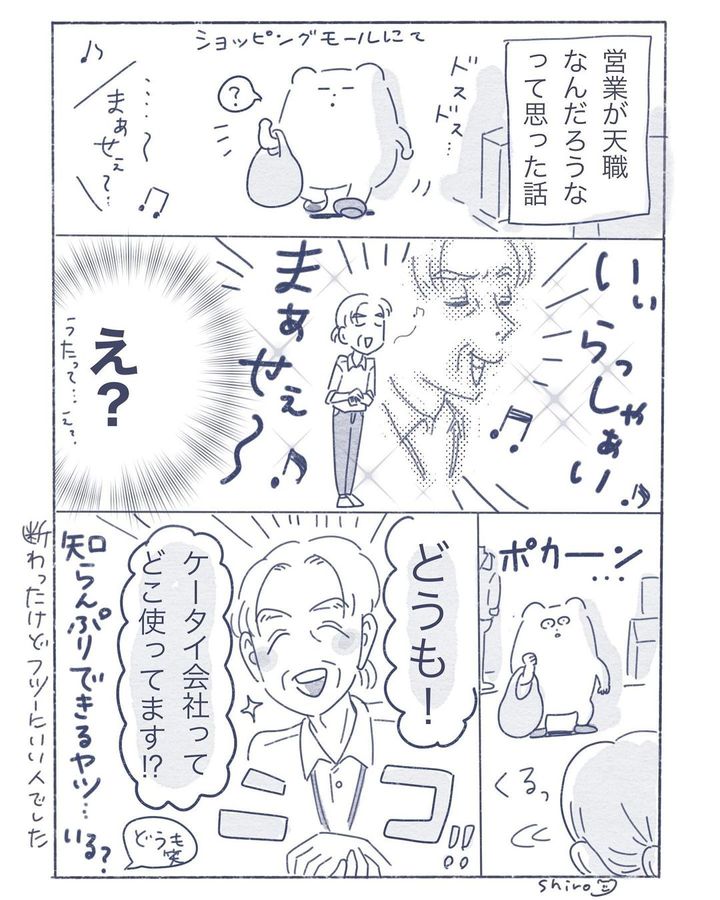 営業が天職
なんだろうな
って思った話
ショッピングモールにて
ドスドス…
?
♪
……〜
まぁせぇ〜…
♫
いぃらっしゃぁい♪
♫
♪
まぁせぇ〜♪
え?
うたって…えっ?
ポカーン…
くるっ
どうも!
ケータイ会社って
どこ使ってます!?
ニコ!!
どうも笑
知らんぷりできるヤツ…いる?
断わったけどフツーにいい人でした
shiro